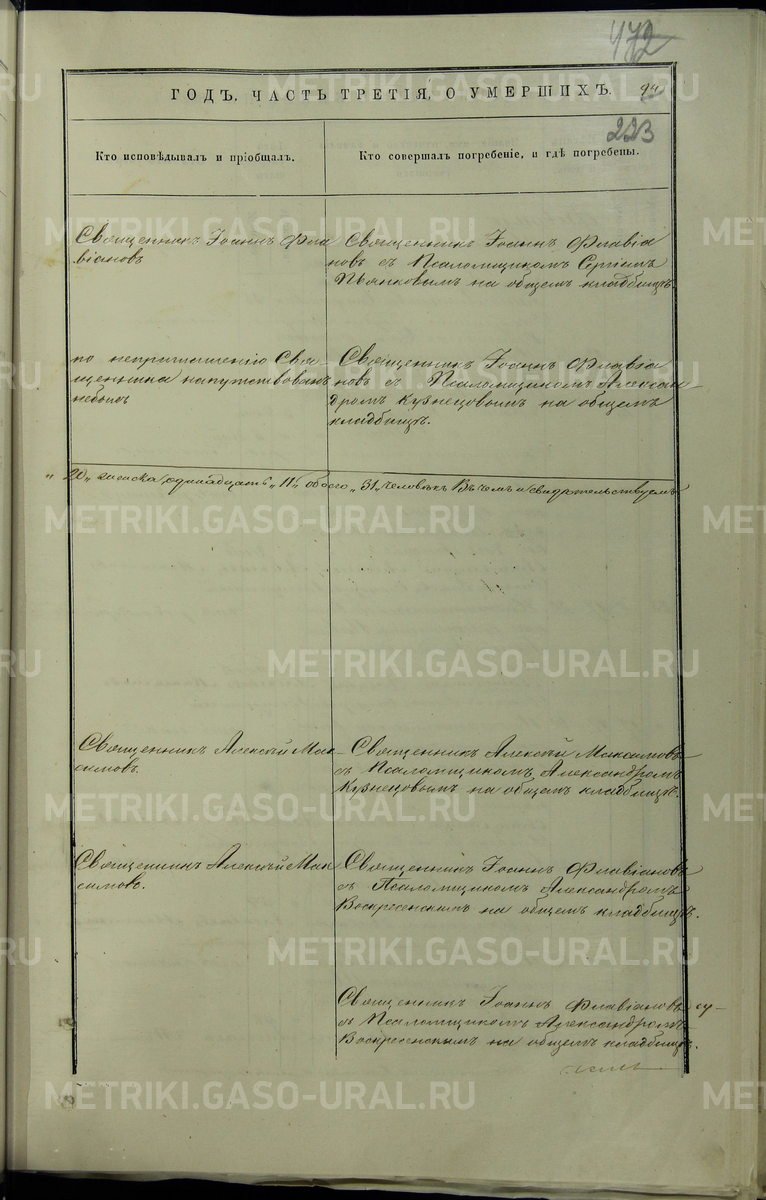 472
ГОДЪ, ЧАСТЬ ТРЕТІЯ, О УМЕРШИХЪ.
233
Кто исповѣдывалъ и пріобщалъ.
Кто совершалъ погребеніе, и гдѣ погребены.
Священникъ Іоаннъ Фла
віановъ
Священникъ Іоаннъ Флавіа
новъ съ Псаломщикомъ Сергіемъ
Пьянковымъ на общемъ кладбищѣ.
по неприглашенію Свя-
щенника напутствованъ
небылъ
Священникъ Іоаннъ Флавіа
новъ съ Псаломщикомъ Алексан
дромъ Кузнецовымъ на общемъ
кладбищѣ.
„ 20„ женска одинадцать „11„ обоего „31„ человѣкъ Въ чемъ и свидѣтельствуемъ
Священникъ Алексѣй Мак-
симовъ.
Священникъ Алексѣй Максимовъ
съ Псаломщикомъ Александромъ
Кузнецовымъ на общемъ кладбищѣ.
Священникъ Алексѣй Мак
симовъ.
Священникъ Іоаннъ Флавіановъ
съ Псаломщикомъ Александромъ
Воскресенскимъ на общемъ кладбищѣ.
Священникъ Іоаннъ Флавіановъ
съ Псаломщикомъ Александромъ
Воскресенскимъ на общемъ кладбищѣ.
METRIKI.GASO-URAL.RU